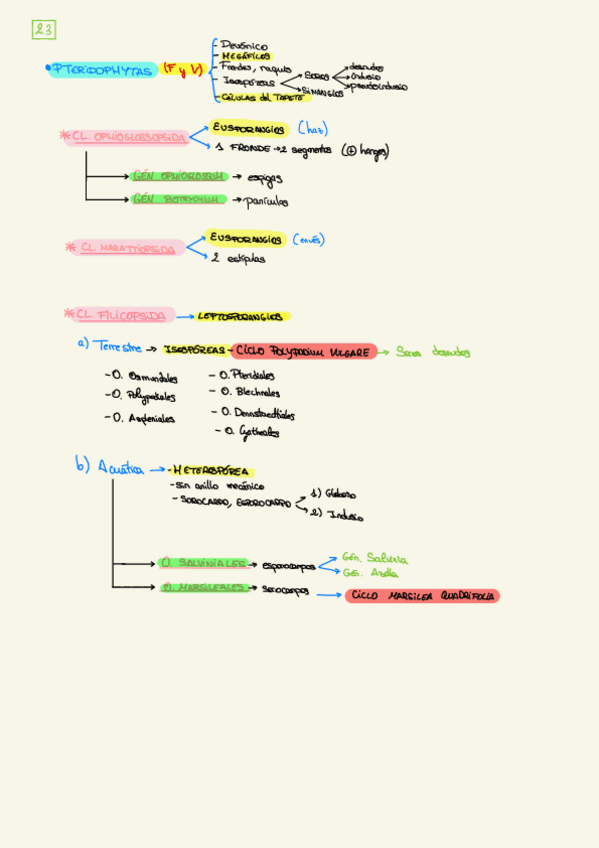 23
• PTERIDOPHYTAS (F y V)
- Devónico
- MEGÁFILOS
- Frondes, raquis
- Isospóreas → SOROS → desnudos
indusio
pseudoindusio
SINANGIOS
- CÉLULAS del TAPETE
* CL. OPHIOGLOSSOPSIDA → EUSPORANGIOS (haz)
1 FRONDE → 2 segmentos (⊕ hongos)
GÉN. OPHIOGLOSSUM → espigas
GÉN. BOTRYCHIUM → panículas
* CL. MARATTIOPSIDA → EUSPORANGIOS (envés)
2 estípulas
* CL. FILICOPSIDA → LEPTOSPORANGIOS
a) Terrestre → ISOSPÓREAS - CICLO POLYPODIUM VULGARE → Soros desnudos
- O. Osmundales - O. Pteridales
- O. Polypodiales - O. Blechnales
- O. Aspleniales - O. Dennstaedtiales
- O. Cyatheales
b) Acuática → - HETEROSPÓREA
- sin anillo mecánico
- SOROCARPO, ESPOROCARPO → 1) Globoso
2) Indusio
O. SALVINIALES → esporocarpos → Gén. Salvinia
Gén. Azolla
O. MARSILEALES → sorocarpos → CICLO MARSILEA QUADRIFOLIA